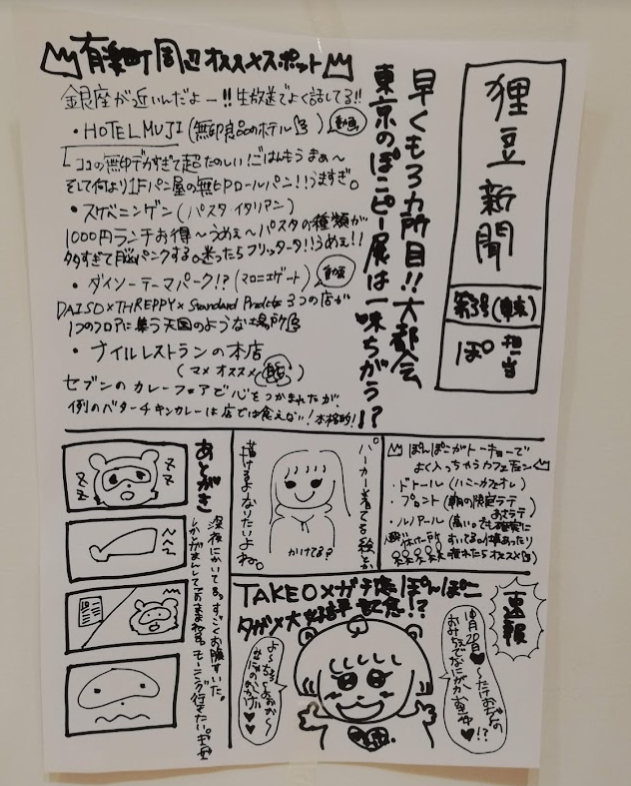 狸豆新聞
第3号(東京)
ぽ担当
早くも3ヵ所目!!大都会
東京のぽこピー展は一味ちがう!?
有楽町周辺オススメスポット
銀座が近いんだよー!!生放送でよく話してる!!
・HOTEL MUJI(無印良品のホテル)
ココの無印デカすぎて超たのしい!ごはんもうまぁ〜
そして何より1Fパン屋の無ヒ゜ロールパン!!うますぎ。
・スケベニンゲン(パスタ・イタリアン)
1000円ランチお得〜うめぇ〜パスタの種類が
多すぎて脳パンクする。迷ったらフリッタータ!!うめぇ!!
・ダイソーテーマパーク!?(マロニエゲート)
DAISO×THREPPY×Standard Products 3つの店が
1つのフロアに集う天国のような場所
・ナイルレストランの本店
(マメオススメ)
セブンのカレーフェアで心をつかまれたが、
例のバターチキンカレーは店では食えない!本格的!
ぽんぽこがトーキョーで
よく入っちゃうカフェ
・ドトール(ハニーカフェオレ)
・プロント(朝の限定ラテ
・ルノアール(高い。でも確実に
疲れたらオススメ
パーカー着てる絵とか
描けるよなりたいよね。
かけてる?
あとがき
深夜にかいてる。すごくお腹すいた。
しかしがまんしてこのままねる。モーニング行きたい。
速報
TAKEO×ガチ恋ぽんぽこ
10月20日